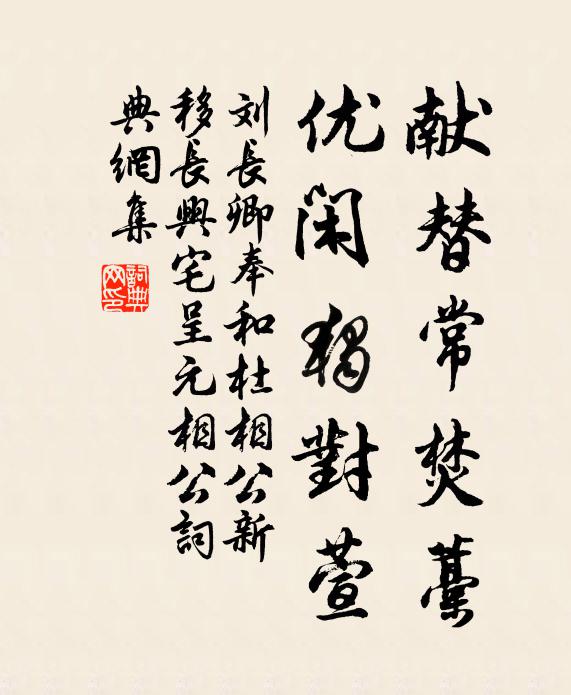 献替常焚藁
优闲独對萱
刘長卿奉和杜相公新
移長興宅呈元相公詞
典網集
詞典网印